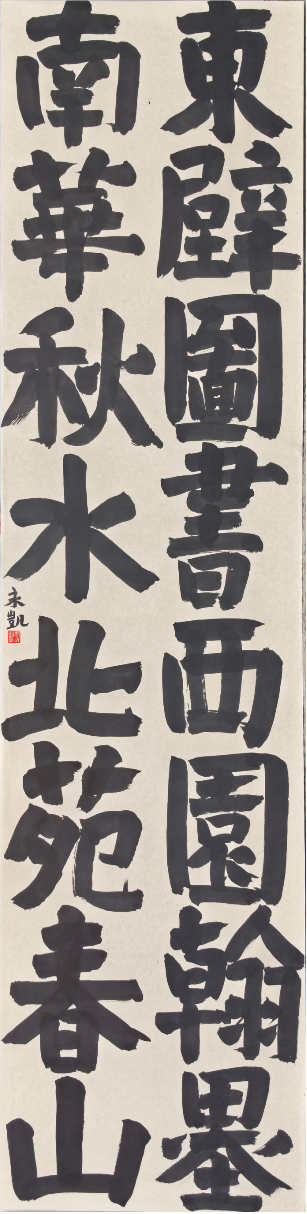 東壁圖書西園翰墨
南華秋水北苑春山
永凱